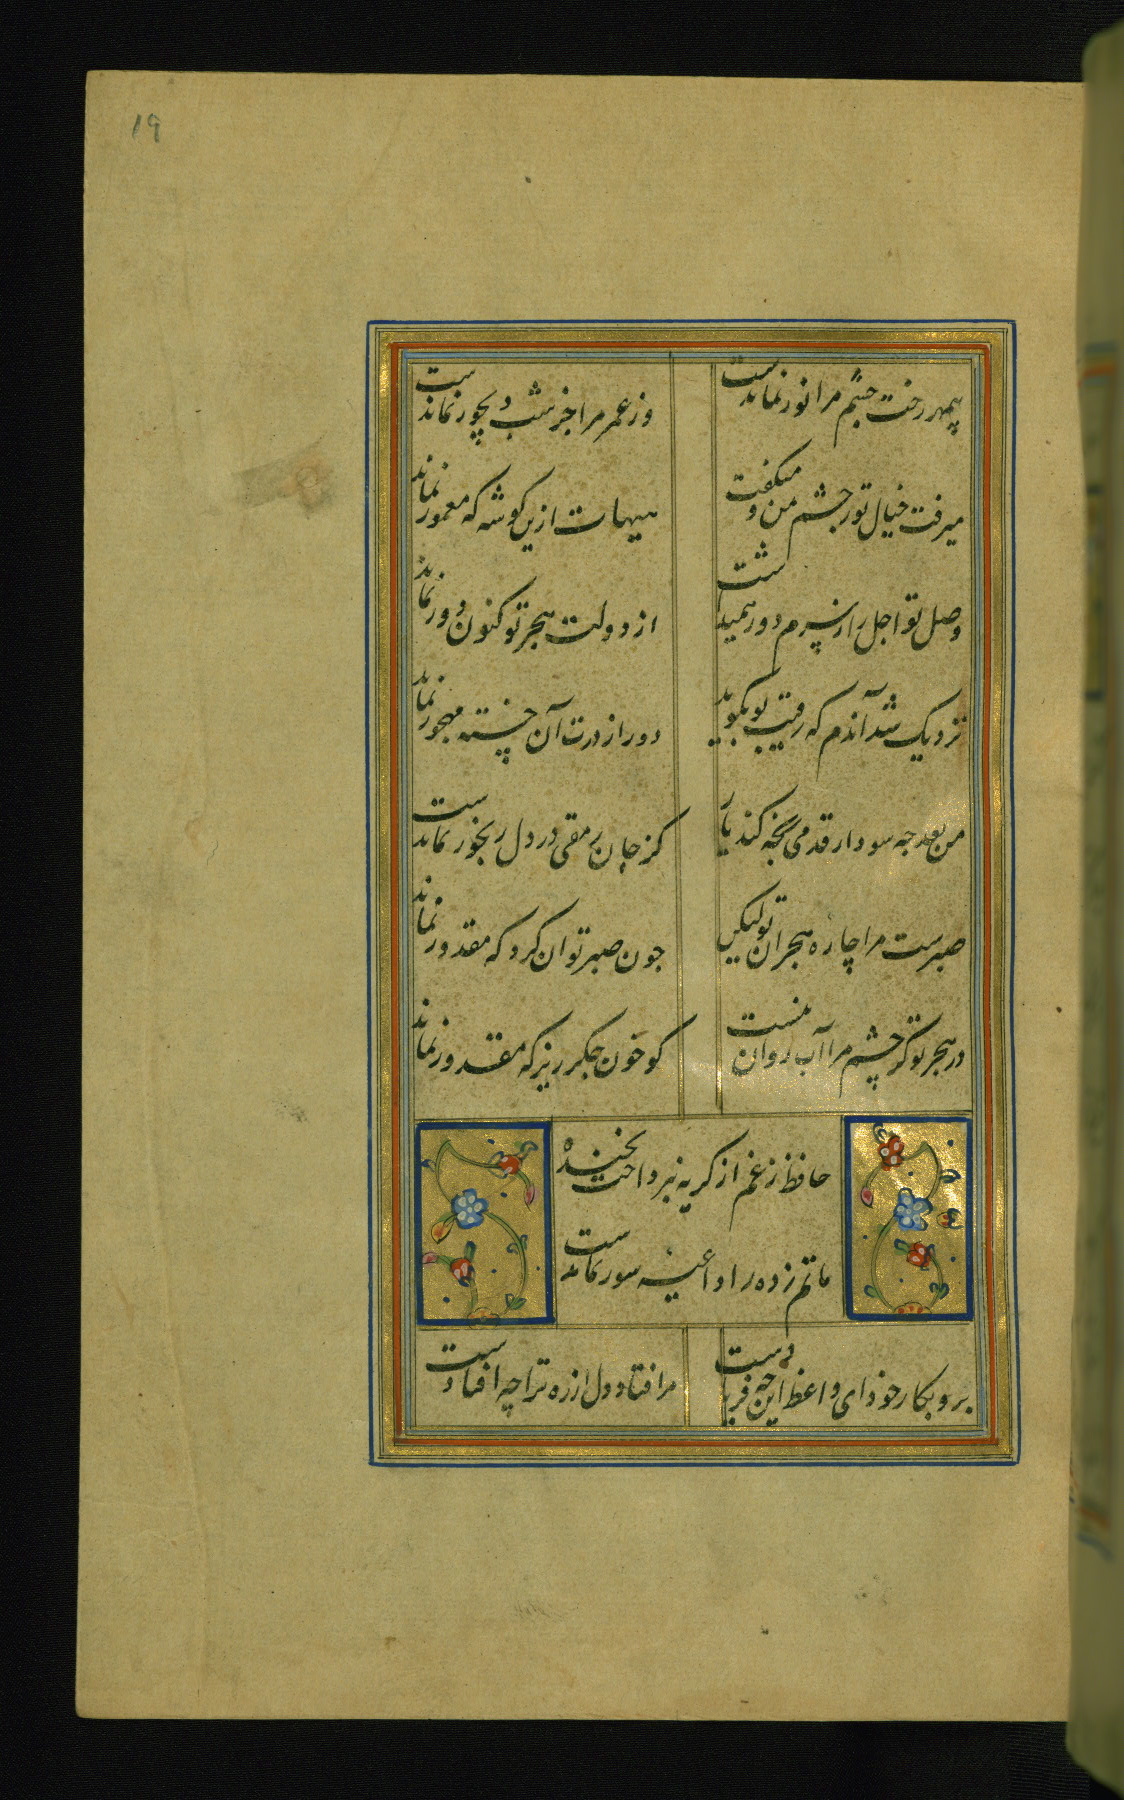 19
بیمهر رخت چشم مرا نور نماندست
وز عمر مرا جز شب دیجور نماندست
میرفت خیال تو ز چشم من و میکفت
هیهات ازین کوشه که معمور نماند
وصل تو اجل را ز سرم دور همیداشت
از دولت هجر تو کنون دور نماند
نزدیک شد آندم که رقیب تو بکوید
دور از درت آن خسته مهجور نماند
من بعد چه سود ار قدمی رنجه کند یار
کز جان رمقی در دل رنجور نماندست
صبرست مرا چاره هجران تو لیکن
چون صبر توان کرد که مقدور نماند
در هجر تو کر چشم مرا آب روانست
کو خون جکر ریز که مقدور نماند
حافظ ز غم از کریه نپرداخت بخنده
ماتم زده را داعیه سور نماندست
برو بکار خود ای واعظ این چه فریادست
مرا فتاد دل از ره ترا چه افتادست